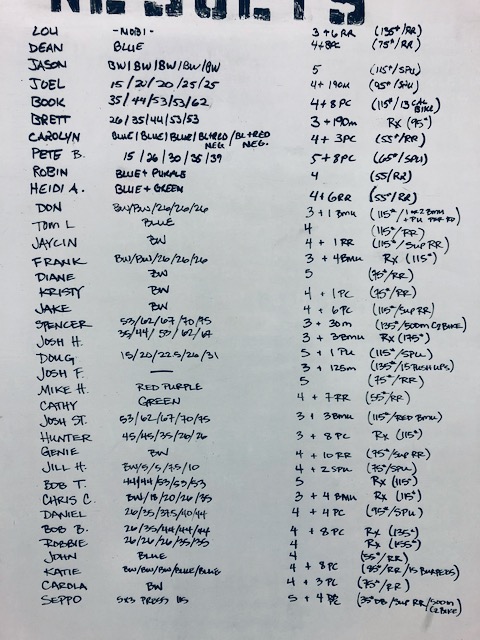 RESULTS
LOU -NOBI- 3 + 6 RR (135#/RR)
DEAN BLUE 4+8PC (75#/RR)
JASON BW/BW/BW/BW/BW 5 (115#/SPU)
JOEL 15/20/20/25/25 4 + 190m (95#/SPU)
BOOK 35/44/53/53/62 4 + 8 PC (115#/13 CAL BIKE)
BRETT 26/35/44/53/53 3 + 190m RX (95#)
CAROLYN BLUE/BLUE/BLUE/BL+RED NEG./BL+RED NEG. 4 + 3PC (55#/RR)
PETE B. 15/26/30/35/39 5 + 8PC (65#/SPU)
ROBIN BLUE + PURPLE 4 (55/RR)
HEIDI A. BLUE + GREEN 4 + 6RR (55/RR)
DON BW/BW/26/26/26 3 + 1 BMU (115#/1 or 2 BMU + PU PER RD)
TOM L BLUE 4 (115#/RR)
JAYLIN BW 4 + 1 RR (115#/SUP RR)
FRANK BW/BW/26/26/26 3 + 4BMU RX (115#)
DIANE BW 5 (75#/RR)
KRISTY BW 4 + 1 PC (75#/RR)
JAKE BW 4 + 6PC (115#/SUP RR)
SPENCER 53/62/67/70/75 3 + 30m (135#/500m C2 BIKE)
JOSH H. 35/44/53/62/67 3 + 3BMU RX (175#)
DOUG 15/20/22.5/26/31 5 + 1 PU (115#/SPU)
JOSH F. — 3 + 125m (135#/15 PUSH UPS)
MIKE H. RED PURPLE 5 (75#/RR)
CATHY GREEN 4 + 7 RR (55#/RR)
JOSH ST. 53/62/67/70/75 3 + 3BMU (115#/RED BMU)
HUNTER 45/45/35/26/26 3 + 8 PC RX (115#)
GENIE BW 4 + 10 RR (75#/SUP RR)
JILL H. BW/5/5/7.5/10 4 + 2 SPU (75#/SPU)
BOB T. 44/44/53/53/53 5 RX (115#)
CHRIS C. BW/18/20/26/35 3 + 4 BMU RX (115#)
DANIEL 26/35/37.5/40/44 4 + 4PC (95#/SPU)
BOB B. 26/35/44/44/44 4 + 8 PC RX (135#)
ROBBIE 26/26/26/35/35 4 RX (155#)
JOHN BLUE 4 (55#/RR)
KATIE BW/BW/BW/BLUE/BLUE 4 + 8 PC (85#/RR/15 BURPEES)
CAROLA BW 4 + 3 PC (75#/RR)
SEPPO 5X3 PRESS 115 5 + 4 PC (35# DB/SUP RR/500m C2 BIKE)